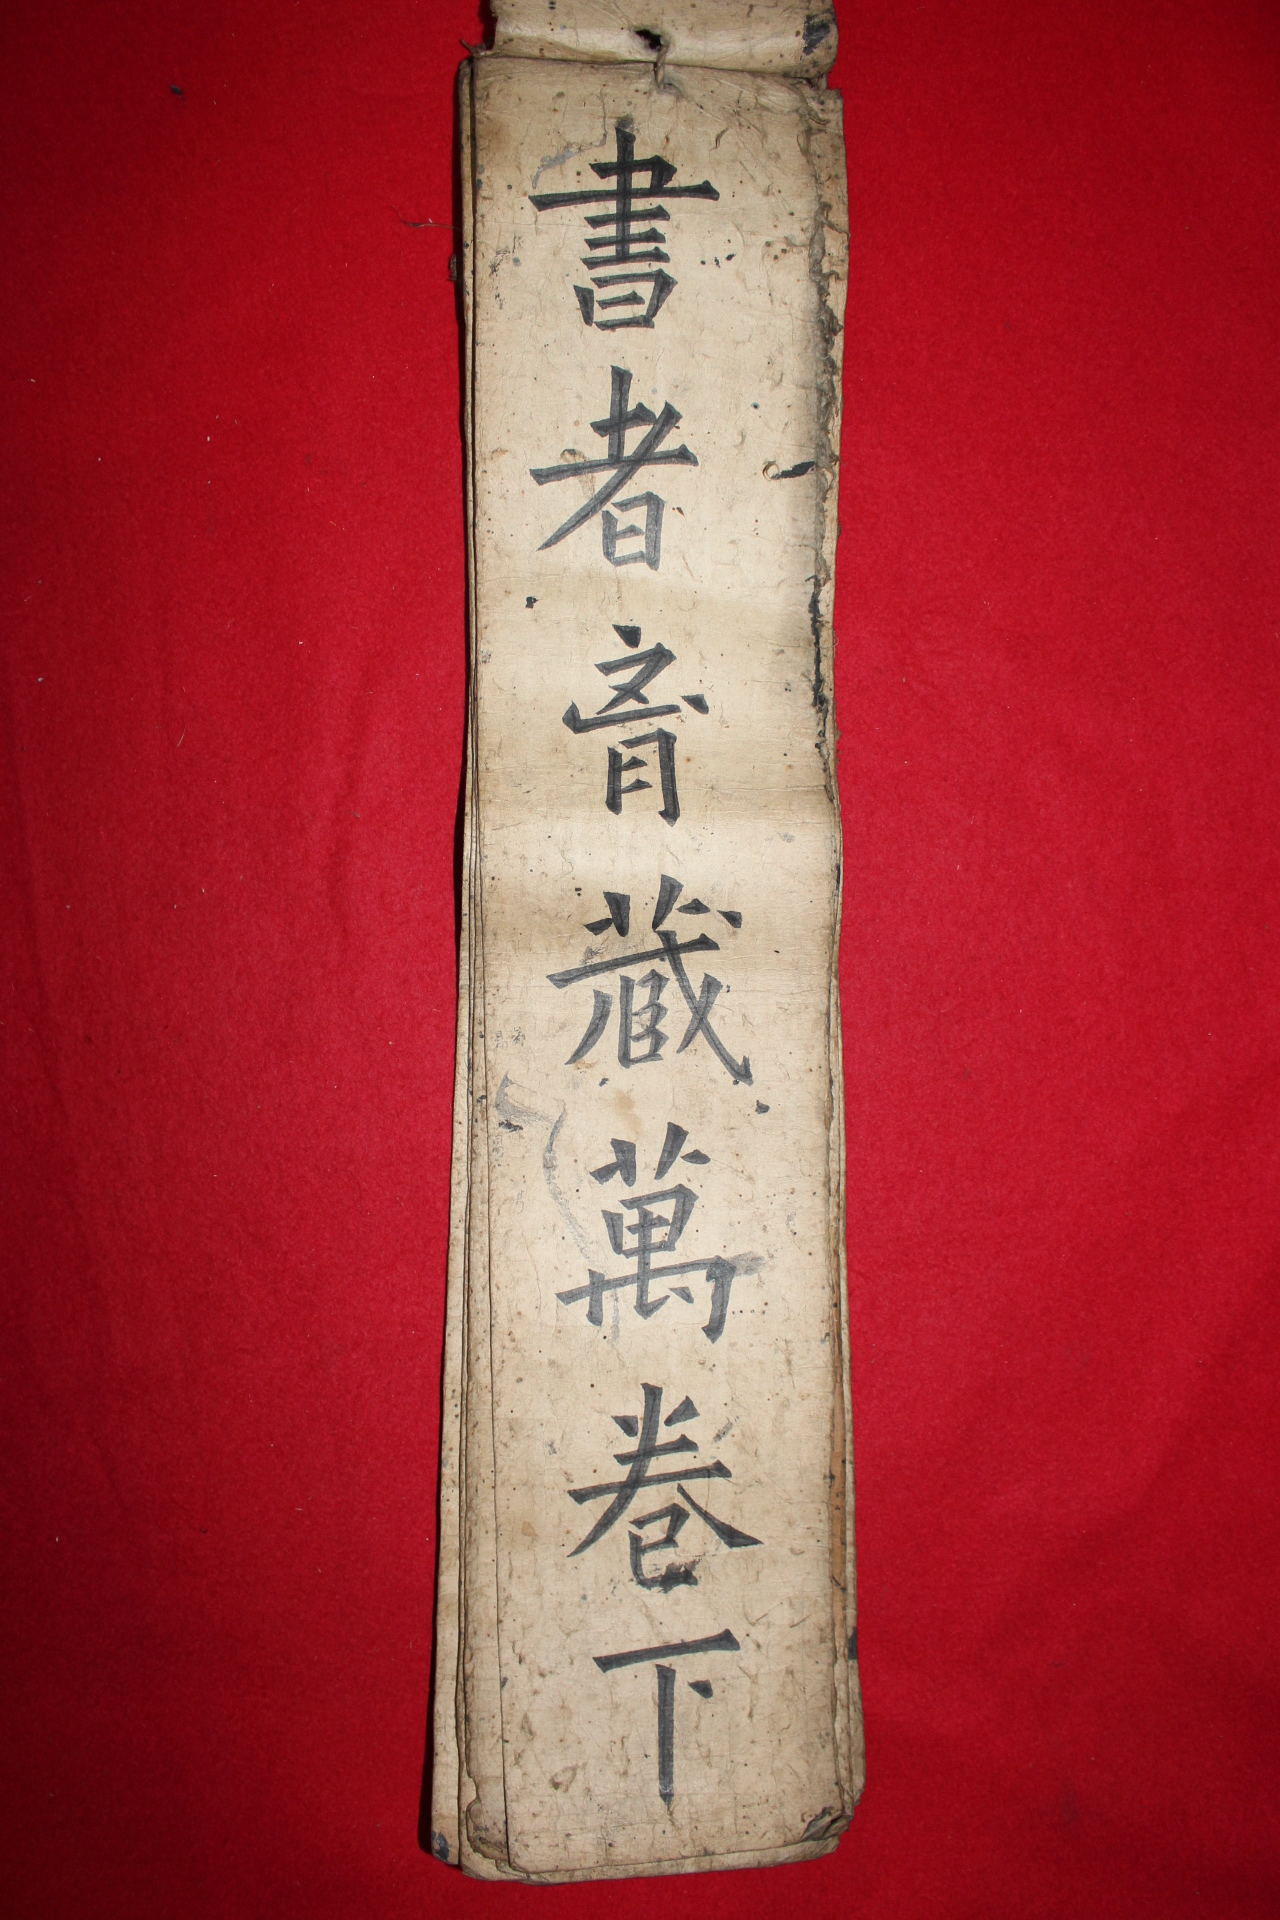 書者育藏萬卷下